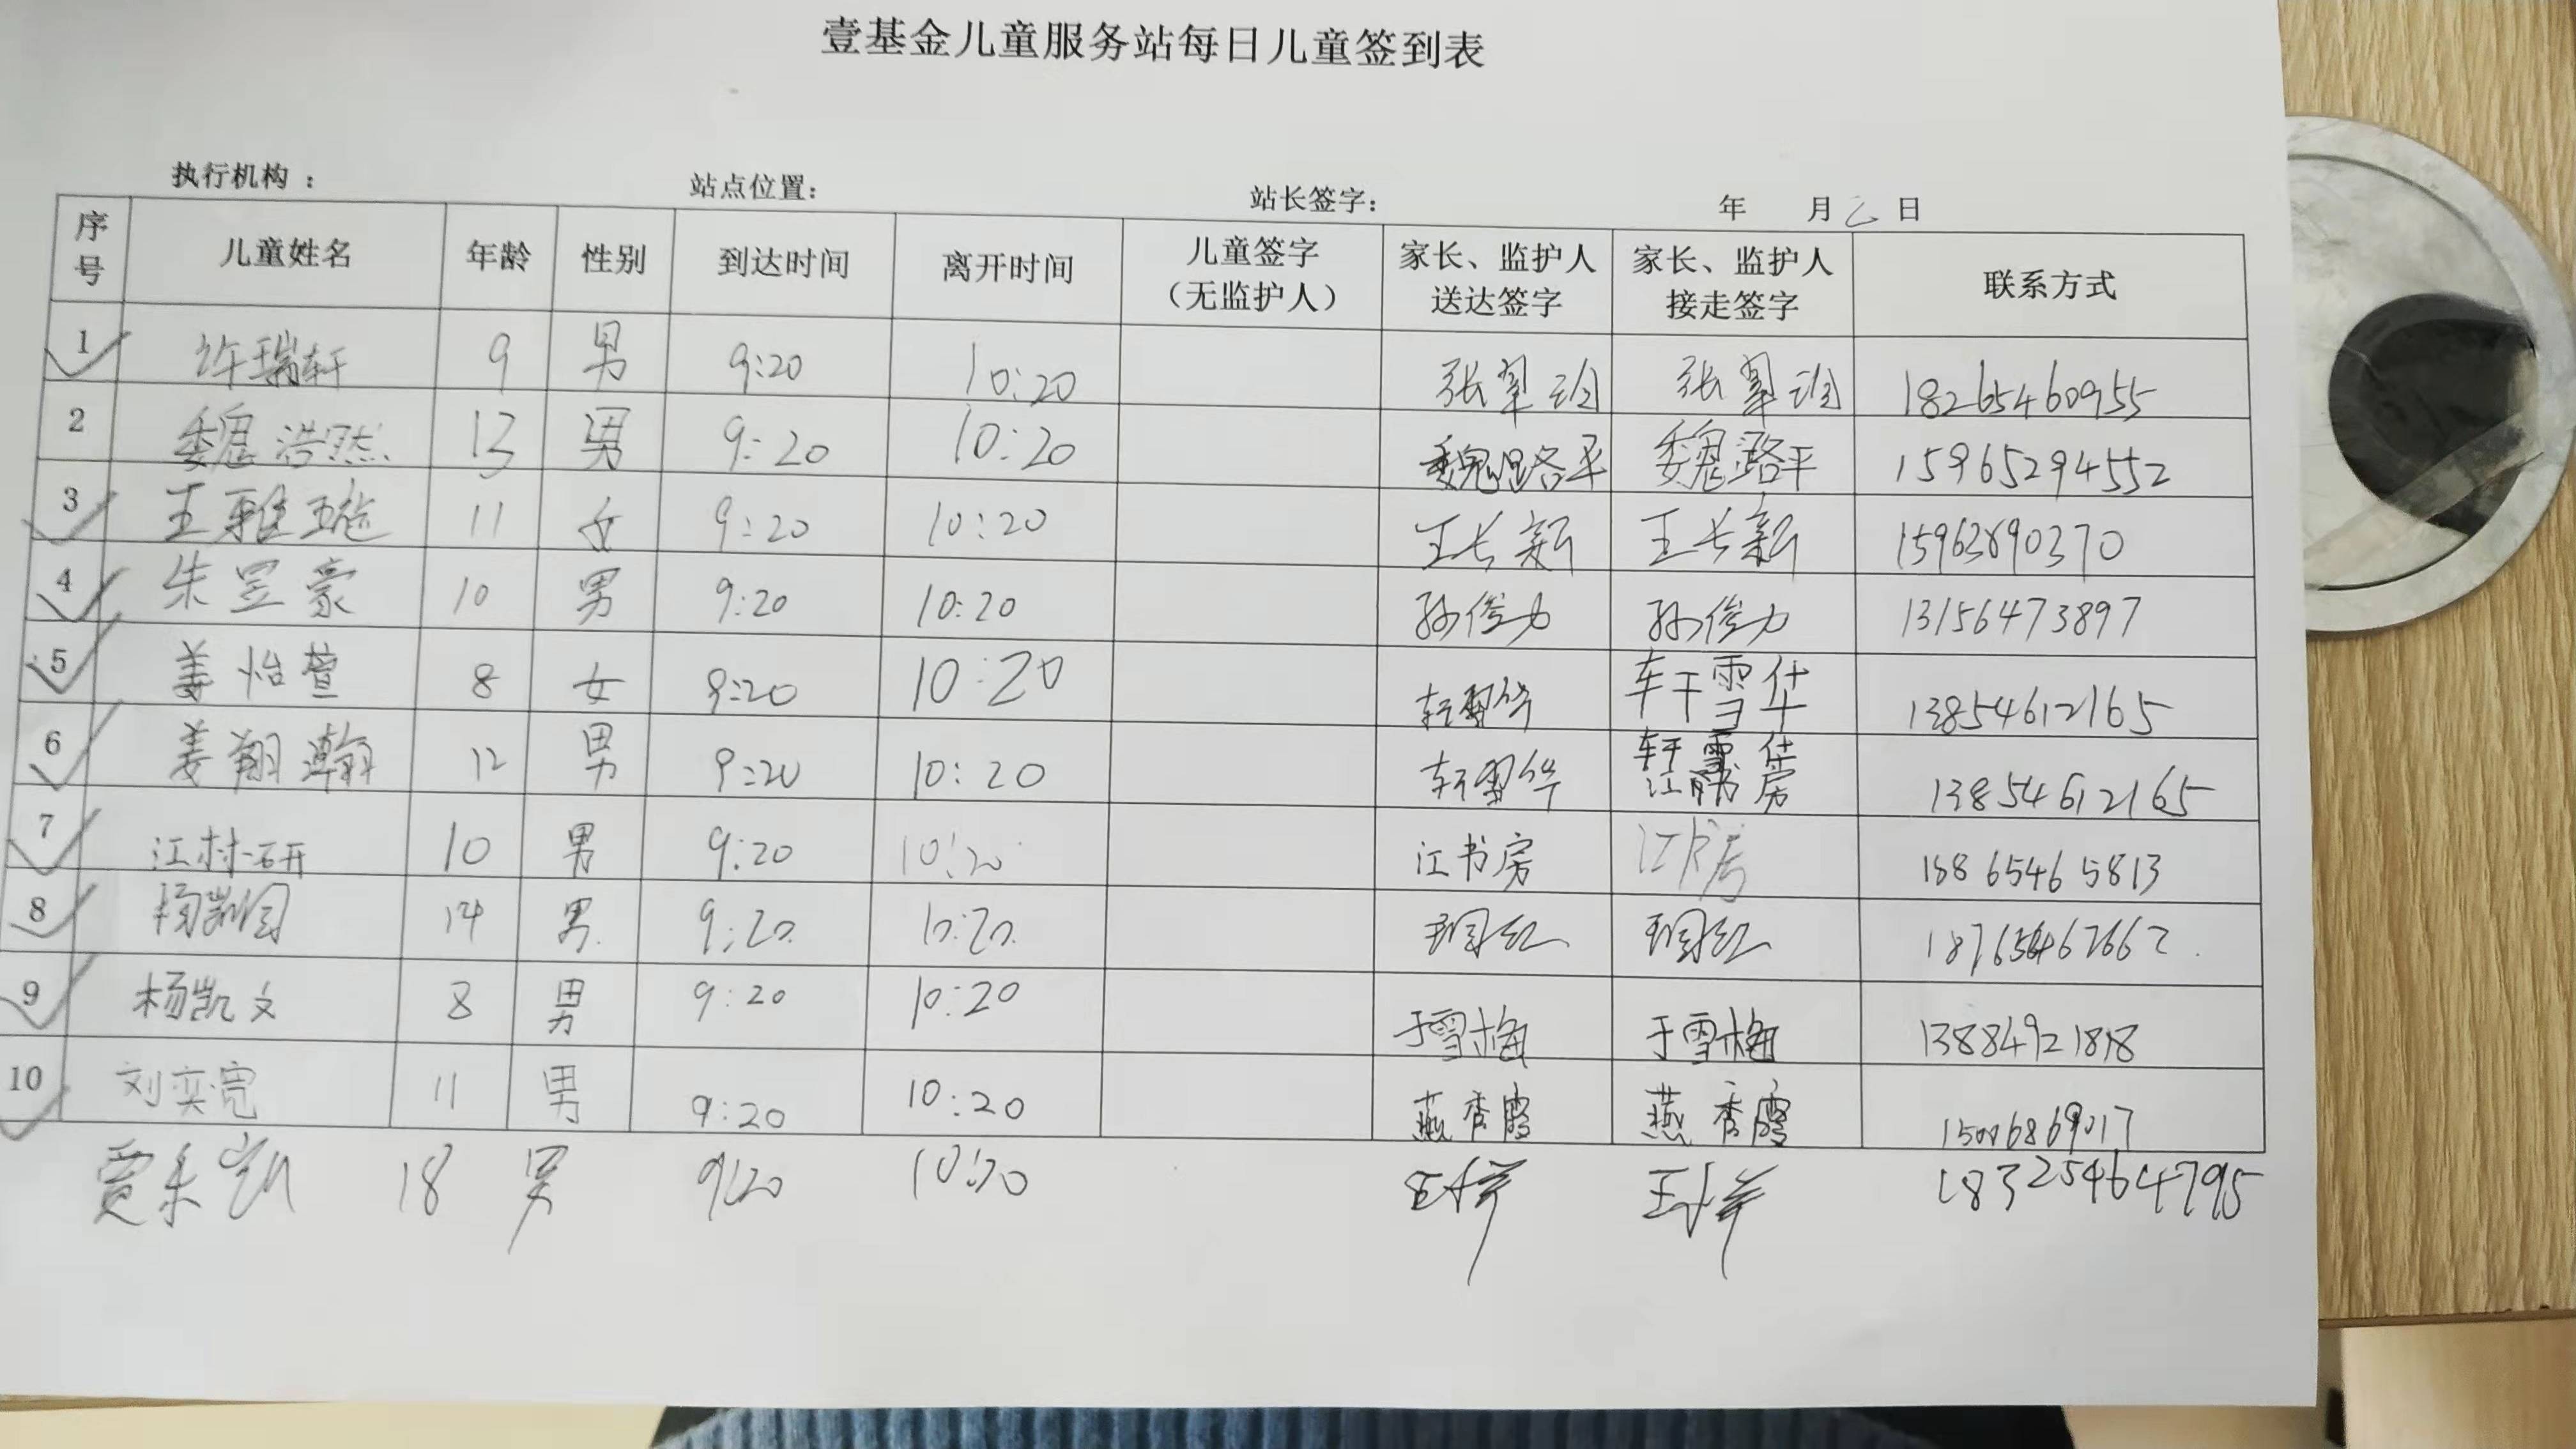 壹基金儿童服务站每日儿童签到表
执行机构： 站点位置： 站长签字： 年 月 日
序号 儿童姓名 年龄 性别 到达时间 离开时间 儿童签字（无监护人） 家长、监护人送达签字 家长、监护人接走签字 联系方式
1 许瑞轩 9 男 9:20 10:20 张翠 张翠 18265460955
2 魏浩然 13 男 9:20 10:20 魏路平 魏路平 15965294552
3 王雅璇 11 女 9:20 10:20 王长新 王长新 15963890370
4 朱昱豪 10 男 9:20 10:20 孙俊力 孙俊力 13156473897
5 姜怡萱 8 女 9:20 10:20 轩雪华 轩雪华 13854612165
6 姜翔瀚 12 男 9:20 10:20 轩雪华 轩雪华 13854612165
7 江村研 10 男 9:20 10:20 江书房 江书房
8 杨凯 14 男 9:20 10:20
9 杨凯文 8 男 9:20 10:20 于雪梅 于雪梅
10 刘奕宽 11 男 9:20 10:20 燕秀霞 燕秀霞 15006869017
贾 18 男 9:20 10:20 18325464795